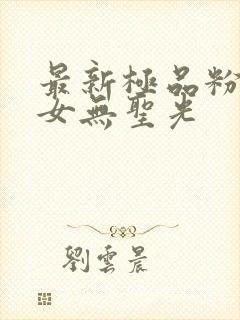 最新極品粉
女無聖光
劉雲晨